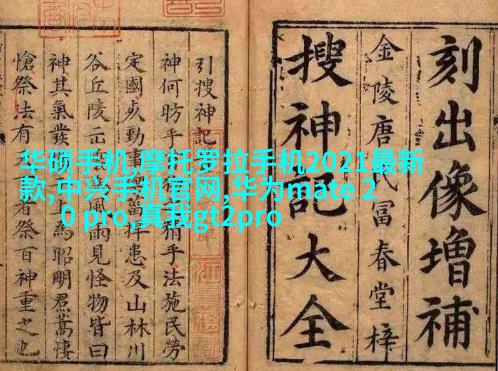 刻出像增補
金陵唐氏富春堂梓
搜神記大全
引搜神記
神何昉乎 猶手法施民勞
定國 勤事 患及山林川
谷丘陵示 風雨見怪物皆曰
神其氣發 上爲昭明焄蒿悽
愴祭法有 者祭百神重之也
华硕手机,摩托罗拉手机2021最新
款,中兴手机官网,华为mate 2
0 pro,真我gt2pro